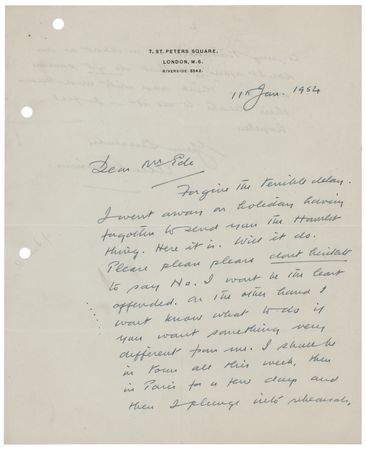 7, ST. PETERS SQUARE,
LONDON, W.6.
RIVERSIDE 5542.
11th Jan. 1954
Dear Mr Ede
Forgive the terrible delay.
I went away on holiday having
forgotten to send you the Hamlet
thing. Here it is. Will it do.
Please please please dont hesitate
to say No. I wont be the least
offended. On the other hand I
wont know what to do if
you want something very
different from me. I shall be
in Town all this week, then
in Paris for a few days and
then I plunge into rehearsals,